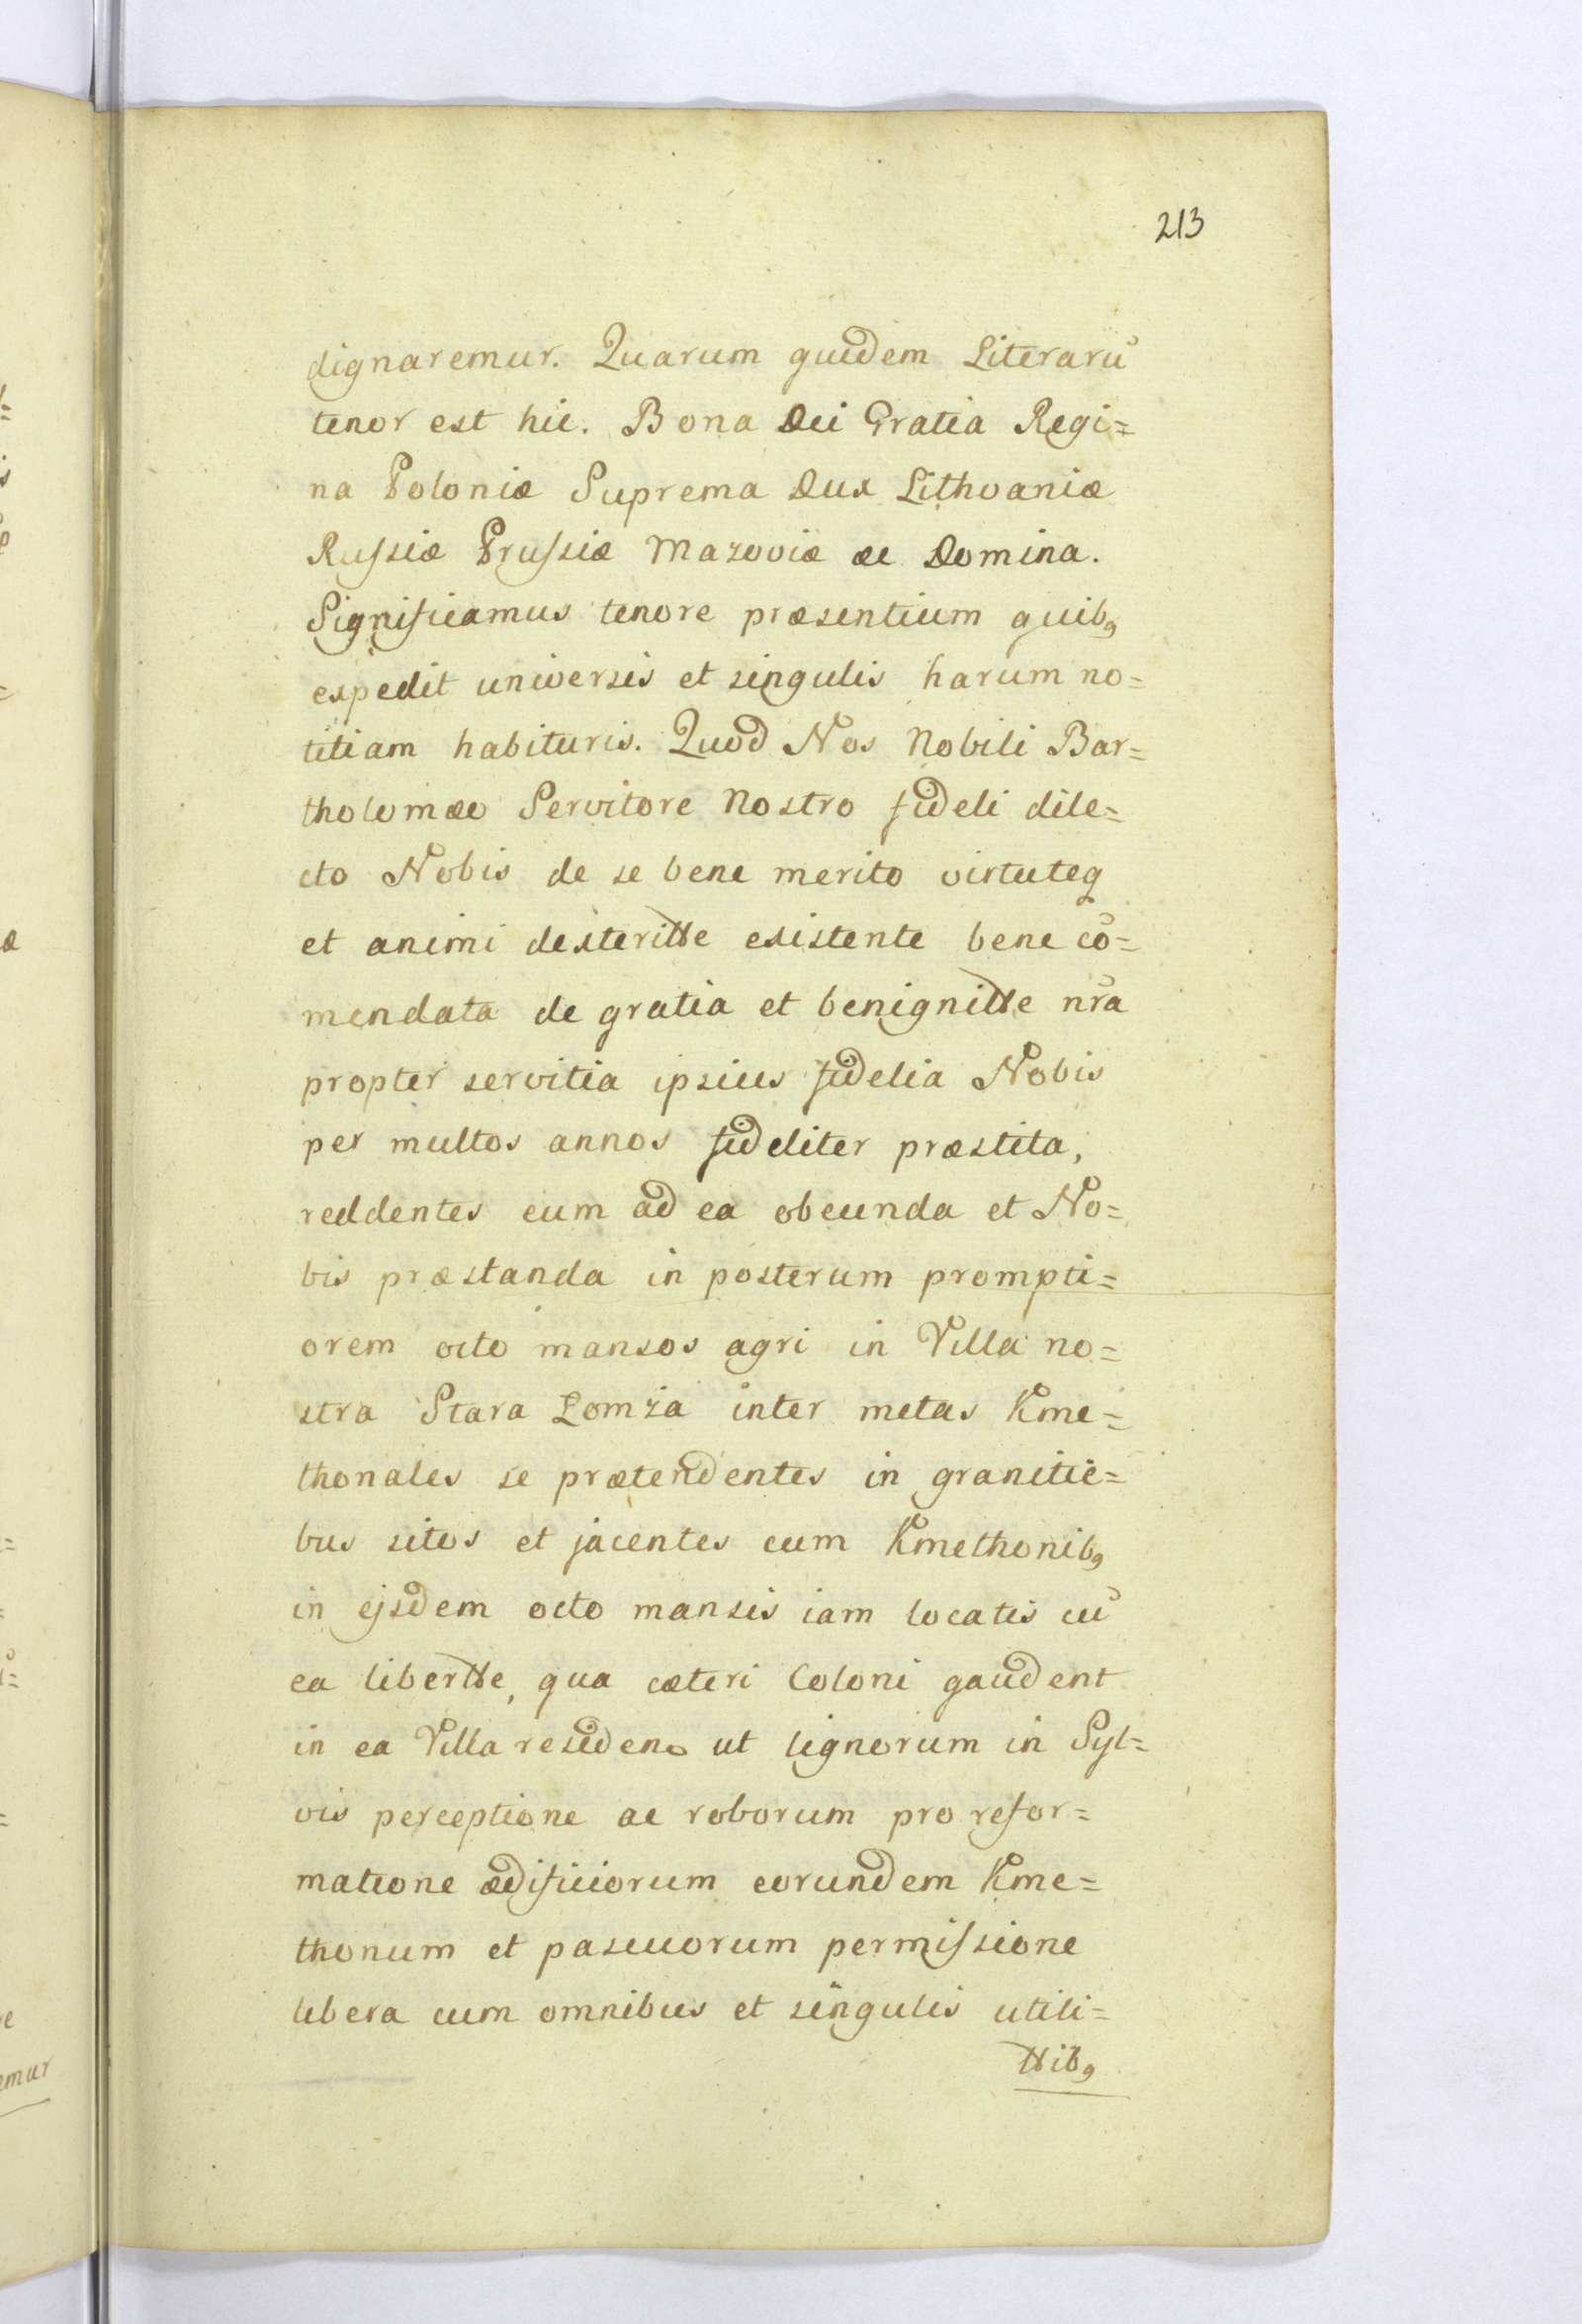 213
dignaremur. Quarum quidem Literarũ
tenor est hic. Bona Dei Gratia Regi=
na Poloniæ Suprema Dux Lithvaniæ
Russiæ Prussiæ Mazoviæ &c Domina.
Significamus tenore præsentium quibꝰ
expedit universis et singulis harum no=
titiam habituris. Quod Nos Nobili Bar=
tholomæo Servitore Nostro fideli dile=
cto Nobis de se bene merito virtuteq
et animi dexteritte existente bene cõ=
mendata de gratia et benignitte nr̃a
propter servitia ipsius fidelia Nobis
per multos annos fideliter præstita,
reddentes eum ad ea obeunda et No=
bis præstanda in posterum prompti=
orem octo mansos agri in Villa no=
stra Stara Lomża inter metas Kme=
thonales se prætendentes in granitie=
bus sitos et jacentes cum Kmethonibꝰ
in ejsdem octo mansis iam locatis cũ
ea libertte, qua cæteri Coloni gaudent
in ea Villa residen. ut lignorum in Syl=
vis perceptione ac roborum pro refor=
matione ædificiorum eorundem Kme=
thonum et pascuorum permissione
libera cum omnibus et singulis utili=
ttibꝰ
emur